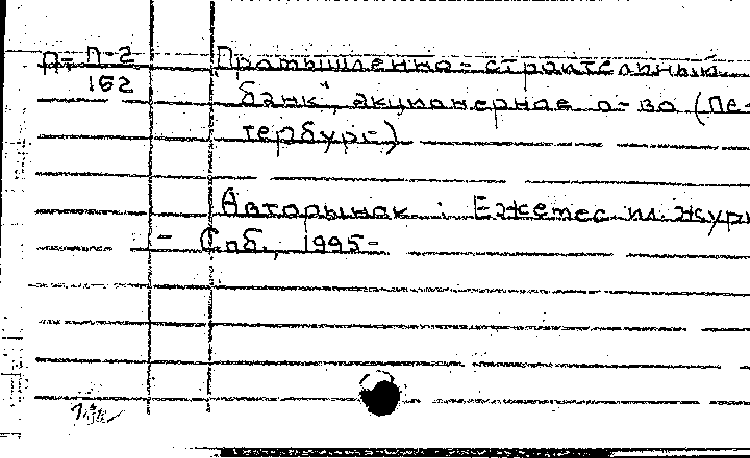 П-2
162
Промышленно-строительный
банк", акционерное о-во (Пе-
тербург)
Авторынок : Ежемес. ил. журн
- Спб., 1995-